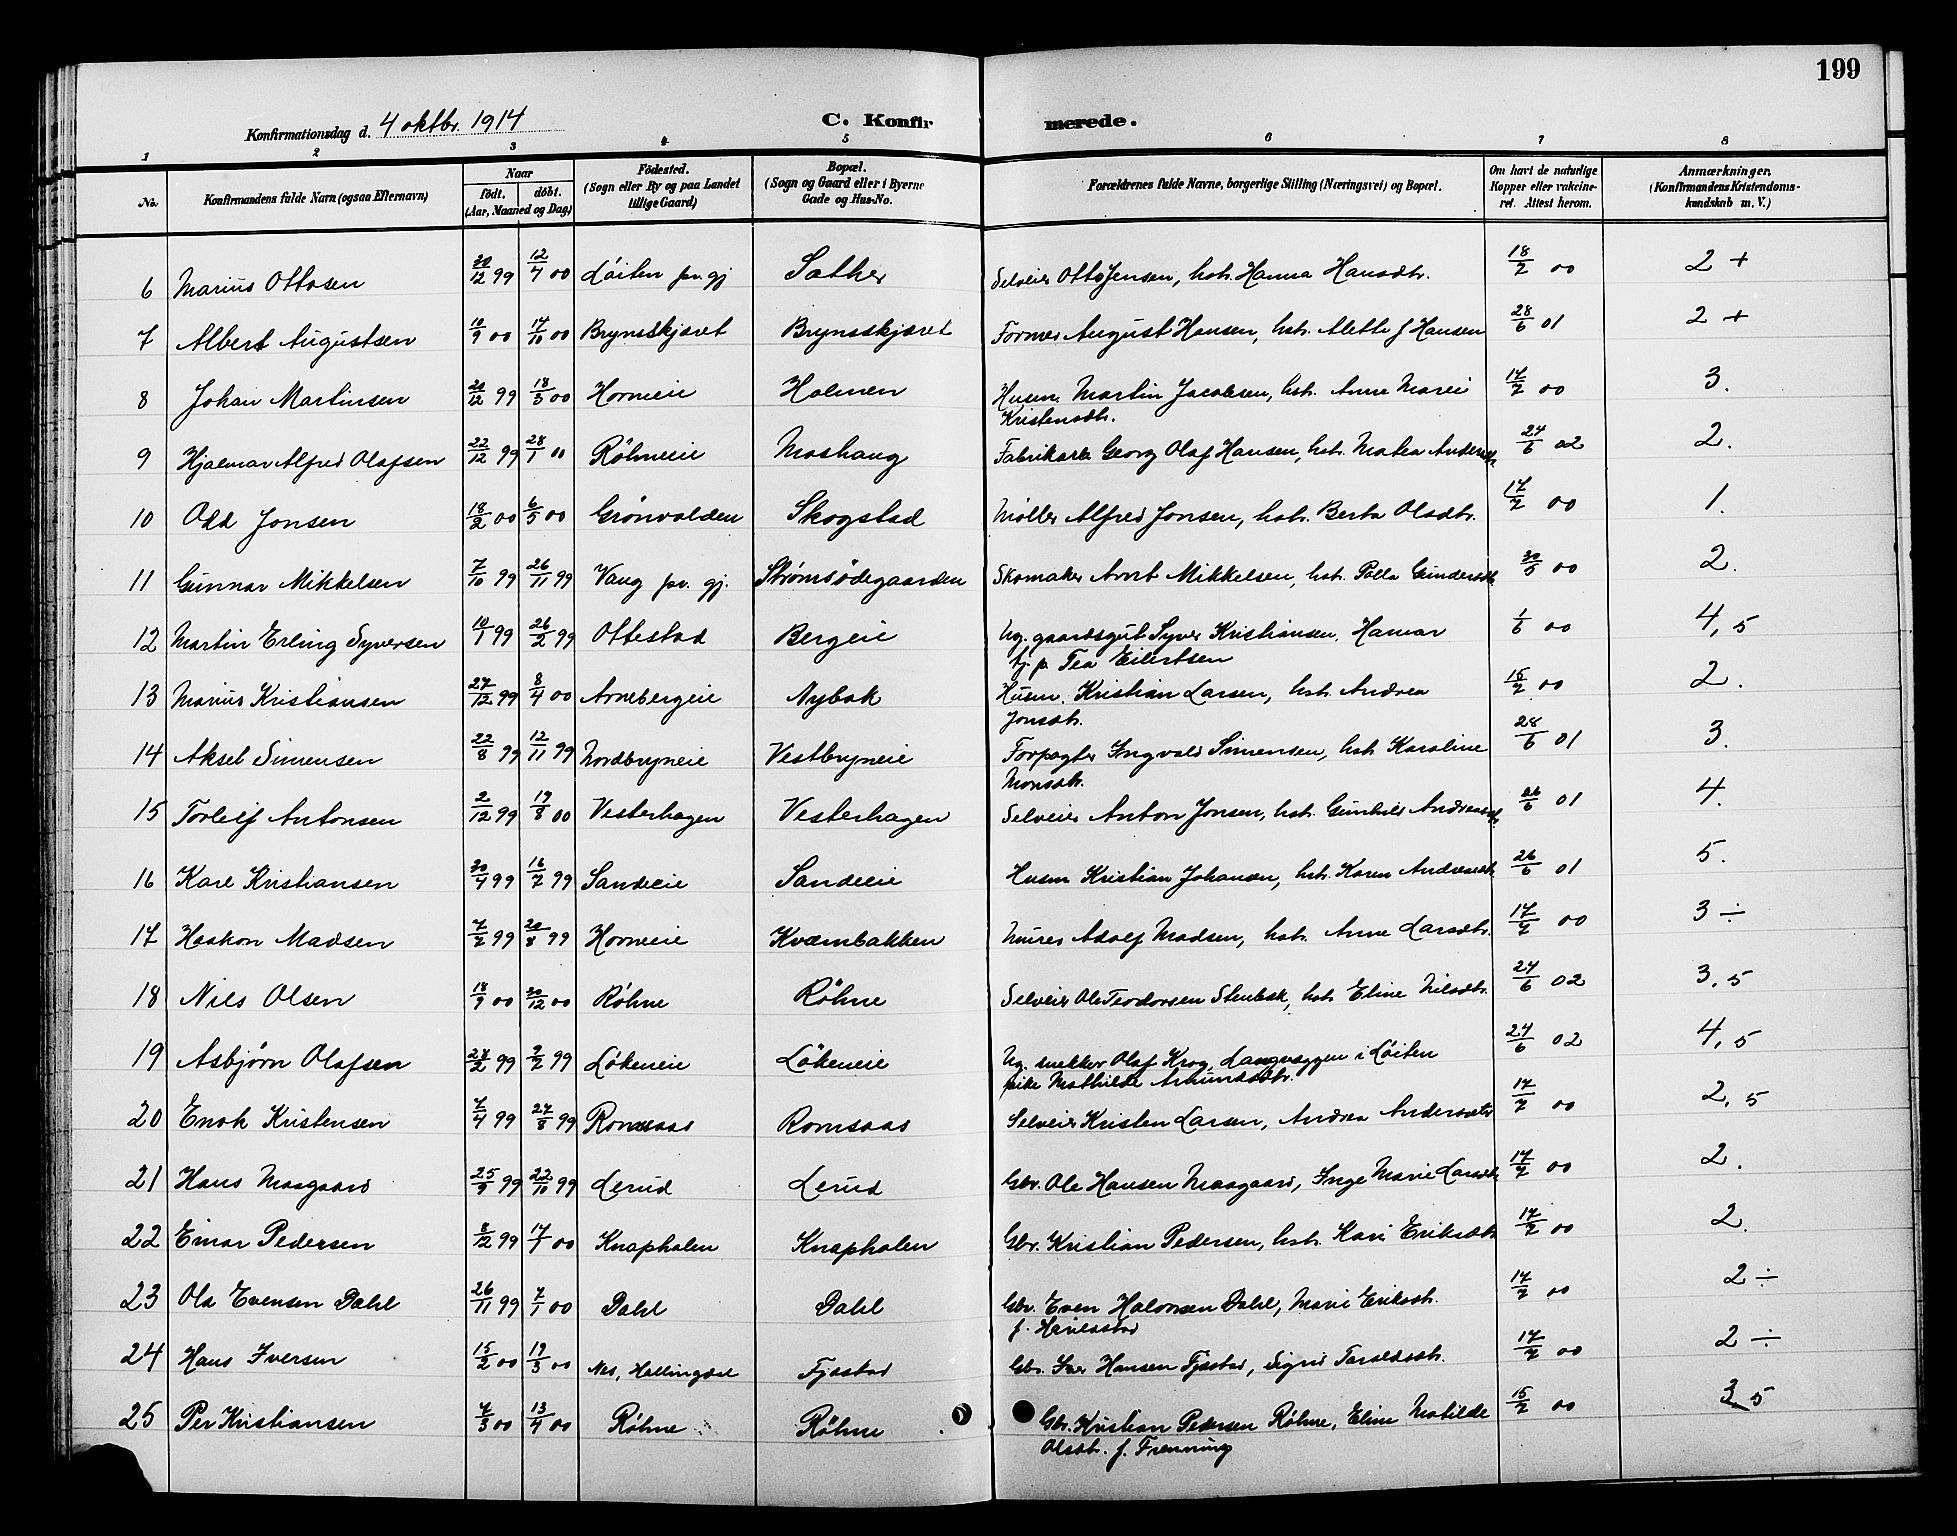 199
Konfirmationsdag d. 4 oktbr. 1914
C. Konfirmerede.
1 2 3 4 5 6 7 8
No.
Konfirmandens fulde Navn (ogsaa Efternavn)
Naar
født. døbt.
(Aar, Maaned og Dag)
Födested.
(Sogn eller By og paa Landet
tillige Gaard)
Bopæl.
(Sogn og Gaard eller i Byerne
Gade og Hus-No.
Forældrenes fulde Navne, borgerlige Stilling (Næringsvei) og Bopæl.
Om havt de naturlige
Kopper eller vakcine-
ret. Attest herom.
Anmærkninger,
(Konfirmandens Kristendoms-
kundskab m. V.)
6 Marius Ottosen 30/12 99 12/4 00 Löiten pr. gj Sæther Selveier Otto Jensen, hst. Hanna Hansdtr. 18/7 00 2 +
7 Albert Augustsen 10/9 00 14/10 00 Brynsskjæret Brynsskjæret Former August Hansen, hst. Alette f Hansen 28/6 01 2 +
8 Johan Martinsen 20/12 99 18/3 00 Horneie Holmen Husm. Martin Jacobsen, hst. Anne Marie
Kristensdtr. 17/7 00 3.
9 Hjalmar Alfred Olafsen 22/12 99 28/1 00 Röhneeie Moshaug Fabrikarb Georg Olaf Hansen, hst. Matea Andersdtr 24/6 02 2.
10 Odd Jonsen 18/2 00 6/5 00 Grönvolden Skogstad Møller Alfred Jonsen, hst. Berta Olsdtr. 17/7 00 1.
11 Gunnar Mikkelsen 7/10 99 26/11 99 Vang pr. gj. Strømsödegaarden Skomaker Arnt Mikkelsen, hst. Palla Gundersdtr 30/5 00 2.
12 Martin Erling Syversen 10/1 99 26/2 99 Ottestad Bergeie Ug. gaardsgut Syver Kristiansen, Hamar
tj. p. Tea Eilertsen 1/6 00 4,5
13 Marius Kristiansen 27/12 99 8/4 00 Arnebergeie Nybak Husm. Kristian Larsen, hst Andrea
Jonsdtr. 18/7 00 2.
14 Aksel Simensen 22/8 99 12/11 99 Nordbryneie Vestbryneie Forpagter Ingvald Simensen, hst Karoline
Monsdtr. 28/6 01 3.
15 Torleif Antonsen 2/12 99 19/8 00 Vesterhagen Vesterhagen Selveier Anton Jonsen, hst. Gunhild Andreasdtr 26/6 01 4.
16 Karl Kristiansen 30/4 99 16/7 99 Sandeeie Sandeeie Husm Kristian Johansen, hst. Karen Andreasdtr 26/6 01 5.
17 Haakon Madsen 7/7 99 20/8 99 Horneie Kvæmbakken Murer Adolf Madsen, hst. Anne Larsdtr. 17/7 00 3 ÷
18 Nils Olsen 18/9 00 30/12 00 Röhne Röhne Selveier Ole Teodorsen Stenbak, hst Eline Nilsdtr. 24/6 02 3,5
19 Asbjørn Olafsen 24/2 99 9/7 99 Lökeneie Lökeneie Ug. snekker Olaf Krog, Langvæggen i Löiten
pike Mathilde Amundsdtr. 24/6 02 4,5
20 Enok Kristensen 7/4 99 27/8 99 Romsaas Romsaas Selveier Kristen Larsen, Andrea Andersdtr 17/7 00 2,5
21 Hans Maagaard 25/9 99 22/10 99 Lerud Lerud Gbr. Ole Hansen Maagaard, Inge Marie Larsdtr 17/7 00 2.
22 Einar Pedersen 8/12 99 17/1 00 Knapholen Knapholen Gbr. Kristian Pedersen, hst. Kari Eriksdtr 17/7 00 2.
23 Ola Evensen Dahl 26/11 99 7/1 00 Dahl Dahl Gbr. Even Halvorsen Dahl, Marie Eriksdtr.
f. Hævlestad 17/7 00 2 ÷
24 Hans Iversen 15/2 00 19/3 00 Nes, Hallingdal Fjæstad Gbr. Iver Hansen Fjæstad, Sigrid Taraldsdtr. 17/7 00 2 ÷
25 Per Kristiansen 7/3 00 13/4 00 Röhne Röhne Gbr. Kristian Pedersen Röhne, Eline Matilde
Olsdtr. f. Frenning 15/7 00 3,5